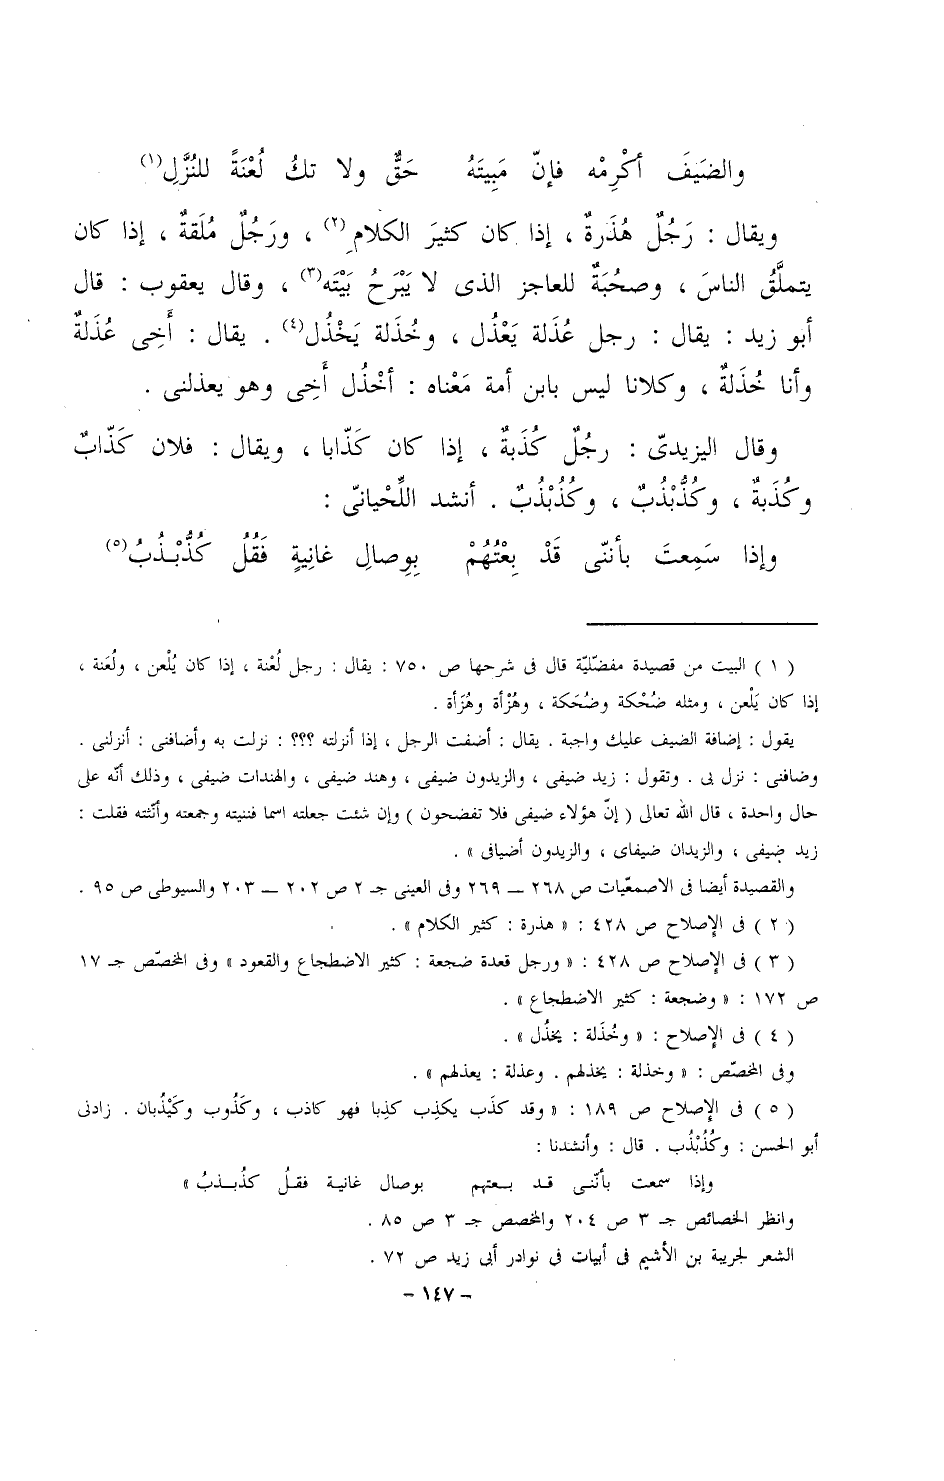 والضَيفَ أكْرِمْه فإنّ مَبِيتَهُ حَقٌّ ولا تكُ لُعْنَةً للنُزَّلِ(١)
ويقال : رَجُلٌ هُذَرةٌ ، إذا كان كثيرَ الكلامِ(٢) ، ورَجُلٌ مُلَقةٌ ، إذا كان
يتملَّقُ الناسَ ، وصحُبَةٌ للعاجز الذى لا يَبْرَحُ بَيْتَه(٣) ، وقال يعقوب : قال
أبو زيد : يقال : رجل عُذَلة يَعْذُل ، وخُذَلة يَخْذُل(٤) . يقال : أَخِى عُذَلةٌ
وأنا خُذَلةٌ ، وكلانا ليس بابن أمة مَعْناه : أخْذُل أَخِى وهو يعذلنى .
وقال اليزيدىّ : رجُلٌ كُذَبةٌ ، إذا كان كَذّابا ، ويقال : فلان كَذّابٌ
وكُذَبةٌ ، وكُذُّبْذُبٌ ، وكُذُبْذُبٌ . أنشد اللِّحْيانىّ :
وإذا سَمِعتَ بأننّى قَدْ بِعْتُهُمْ بِوِصالِ غانِيةٍ فَقُلْ كُذُّبْـذُبُ(٥)
( ١ ) البيت من قصيدة مفضّليّة قال فى شرحها ص ٧٥٠ : يقال : رجل لُعْنة ، إذا كان يُلْعن ، ولُعَنة ،
إذا كان يَلْعن ، ومثله ضُحْكة وضُحَكة ، وهُزْأة وهُزَأة .
يقول : إضافة الضيف عليك واجبة . يقال : أضفت الرجل ، إذا أنزلته ؟؟؟ : نزلت به وأضافنى : أنزلنى .
وضافنى : نزل بى . وتقول : زيد ضيفى ، والزيدون ضيفى ، وهند ضيفى ، والهندات ضيفى ، وذلك أنّه على
حال واحدة ، قال الله تعالى ( إنّ هؤلاء ضيفى فلا تفضحون ) وإن شئت جعلته اسما فثنيته وجمعته وأنّثته فقلت :
زيد ضيفى ، والزيدان ضيفاى ، والزيدون أضيافى » .
والقصيدة أيضا فى الاصمعّيات ص ٢٦٨ ــ ٢٦٩ وفى العينى جـ ٢ ص ٢٠٢ ــ ٢٠٣ والسيوطى ص ٩٥ .
( ٢ ) فى الإصلاح ص ٤٢٨ : « هذرة : كثير الكلام » .
( ٣ ) فى الإصلاح ص ٤٢٨ : « ورجل قعدة ضجعة : كثير الاضطجاع والقعود » وفى المخصّص جـ ١٧
ص ١٧٢ : « وضجعة : كثير الاضطجاع » .
( ٤ ) فى الإصلاح : « وخُذَلة : يخذُل » .
وفى المخصّص : « وخذلة : يخذلهم . وعذلة : يعذلهم » .
( ٥ ) فى الإصلاح ص ١٨٩ : « وقد كذَب يكذِب كذِبا فهو كاذب ، وكَذُوب وكَيْذُبان . زادنى
أبو الحسن : وكُذُبْذُب . قال : وأنشدنا :
وإذا سمعت بأنّنـى قـد بـعتهم بوصال غانيـة فقـلُ كذُبـذبُ »
وانظر الخصائص جـ ٣ ص ٢٠٤ والمخصص جـ ٣ ص ٨٥ .
الشعر لجريبة بن الأشيم فى أبيات فى نوادر أبى زيد ص ٧٢ .
- ١٤٧ -